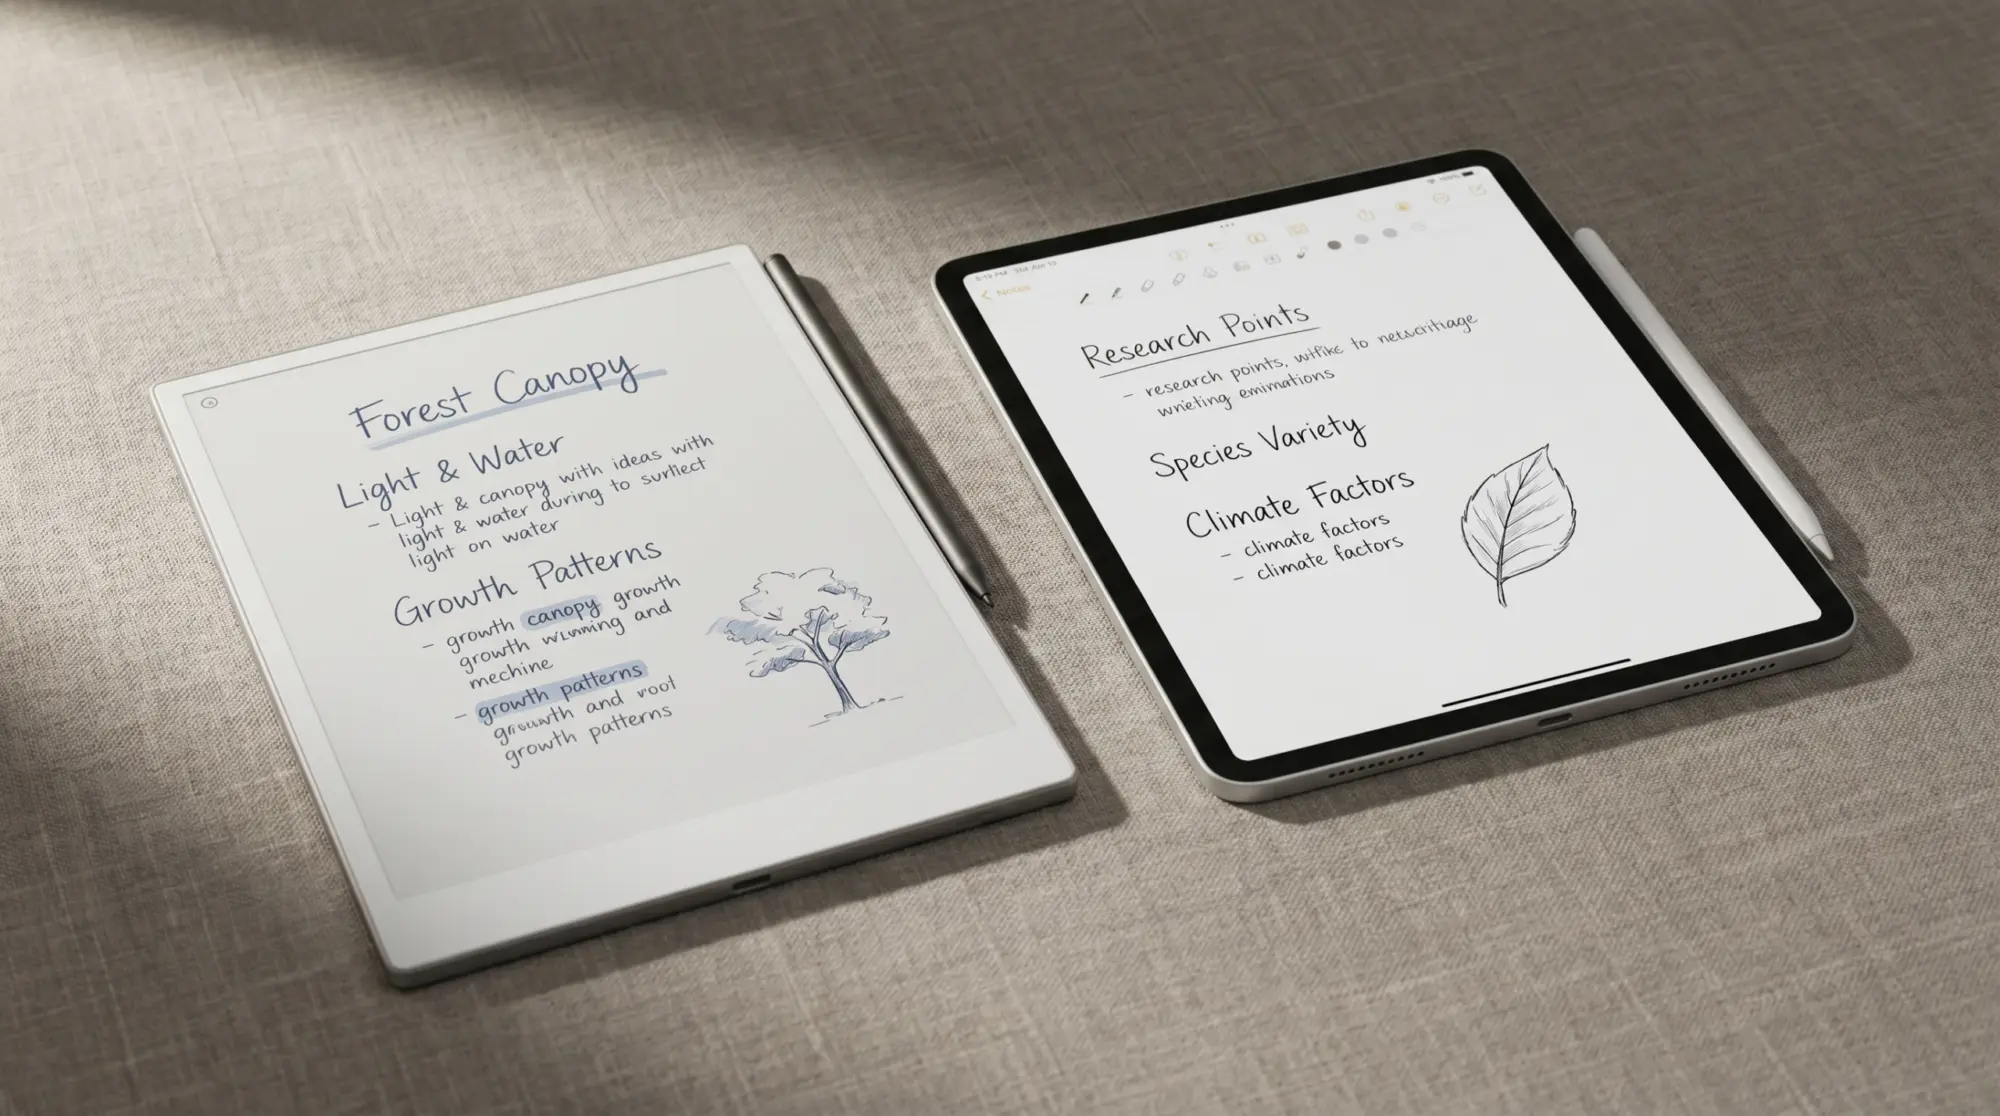 Forest Canopy
Light & Water
- Light & canopy with ideas with
light & water during to surllect
light on water
Growth Patterns
- growth canopy growth
growth wiumning and
mechine
- growth patterns
growth and root
growth patterns
Notes
Research Points
- research points, to
emimations
Species Variety
Climate Factors
- climate factors
- climate factors